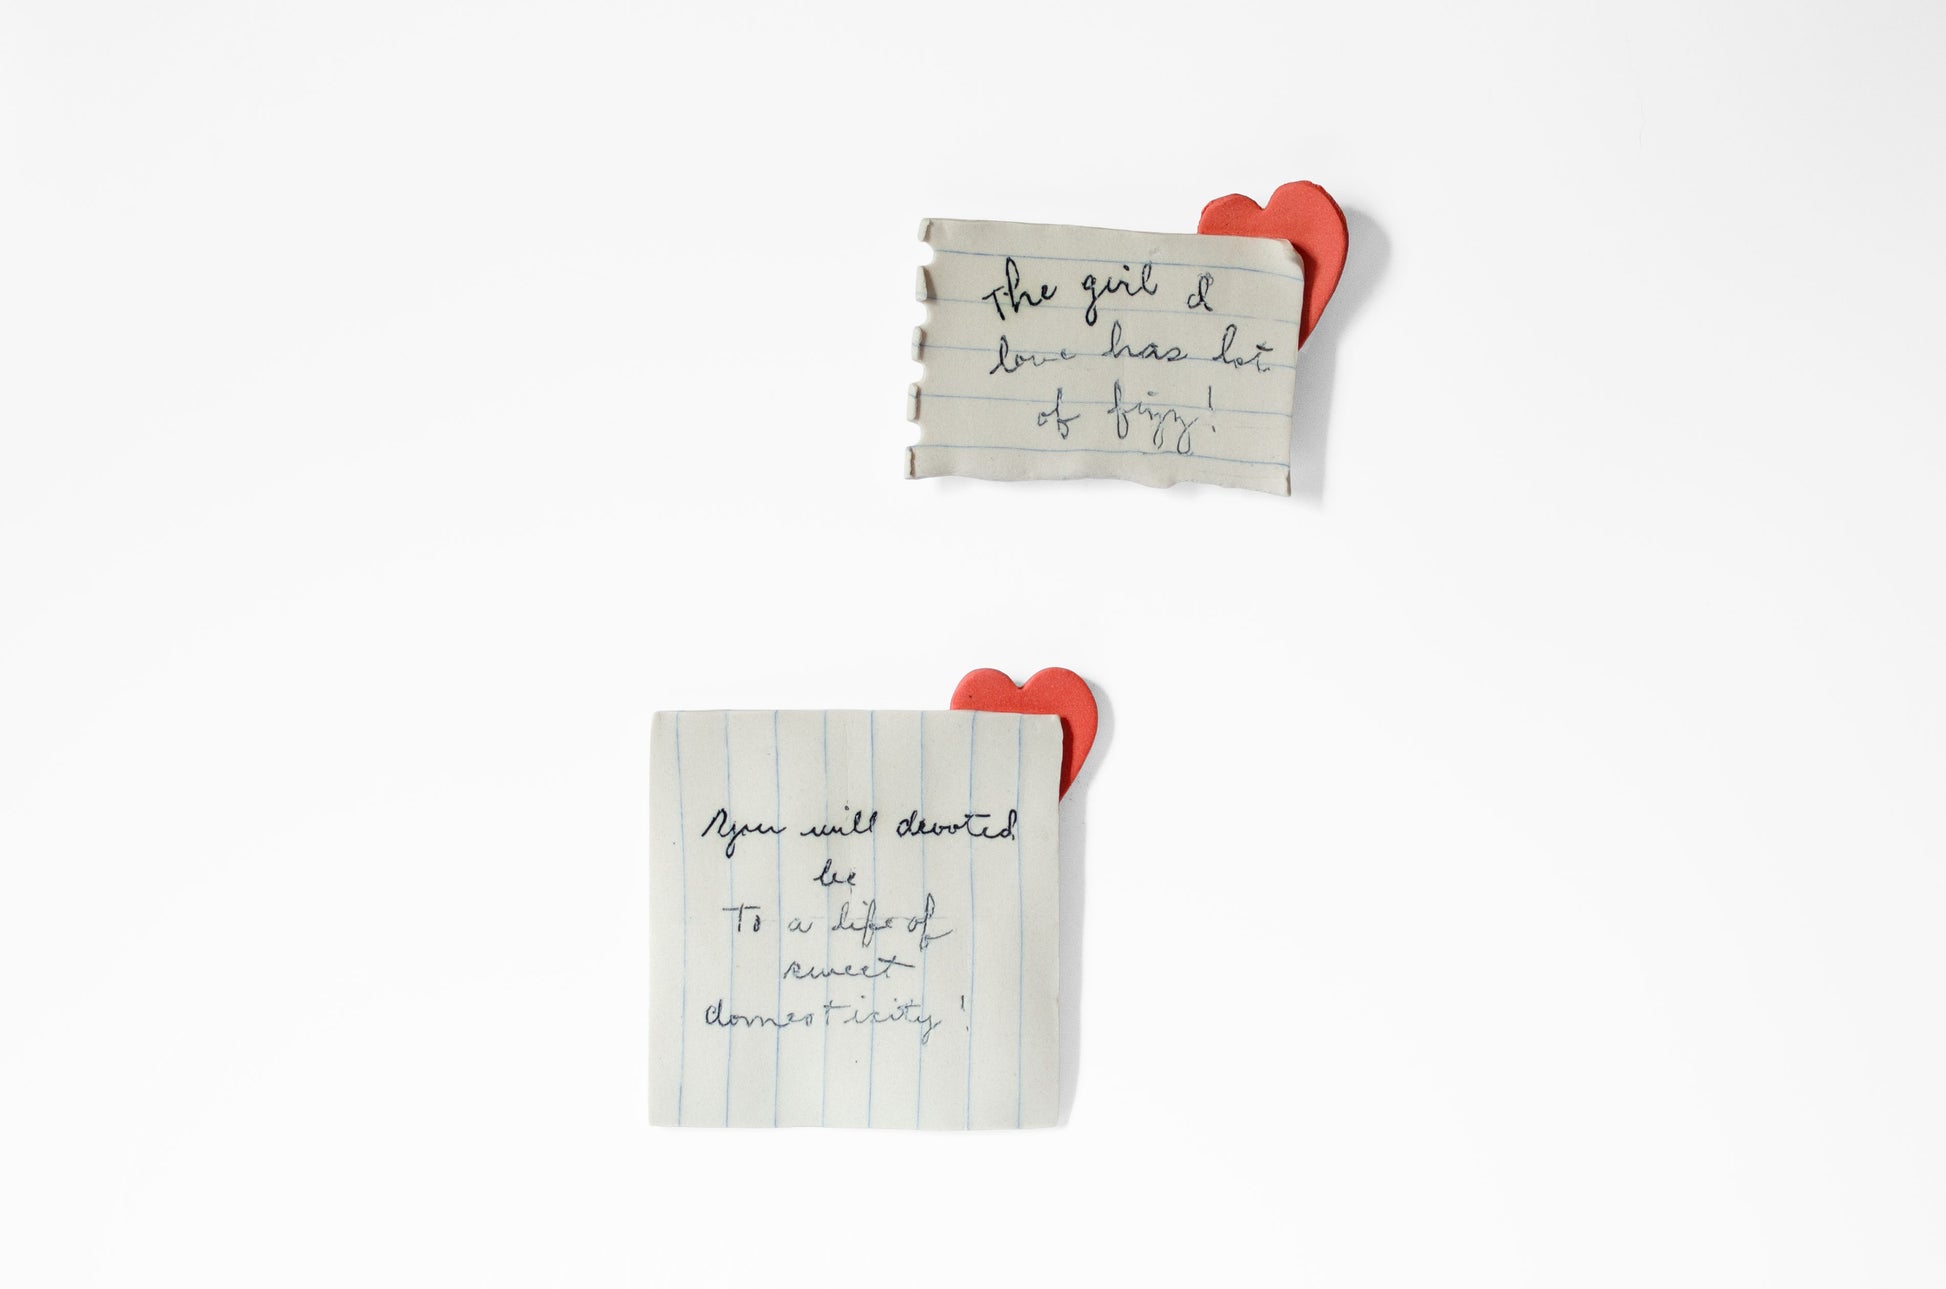 The girl I
love has lot
of fizz!
You will devoted
be
To a life of
sweet
domesticity!